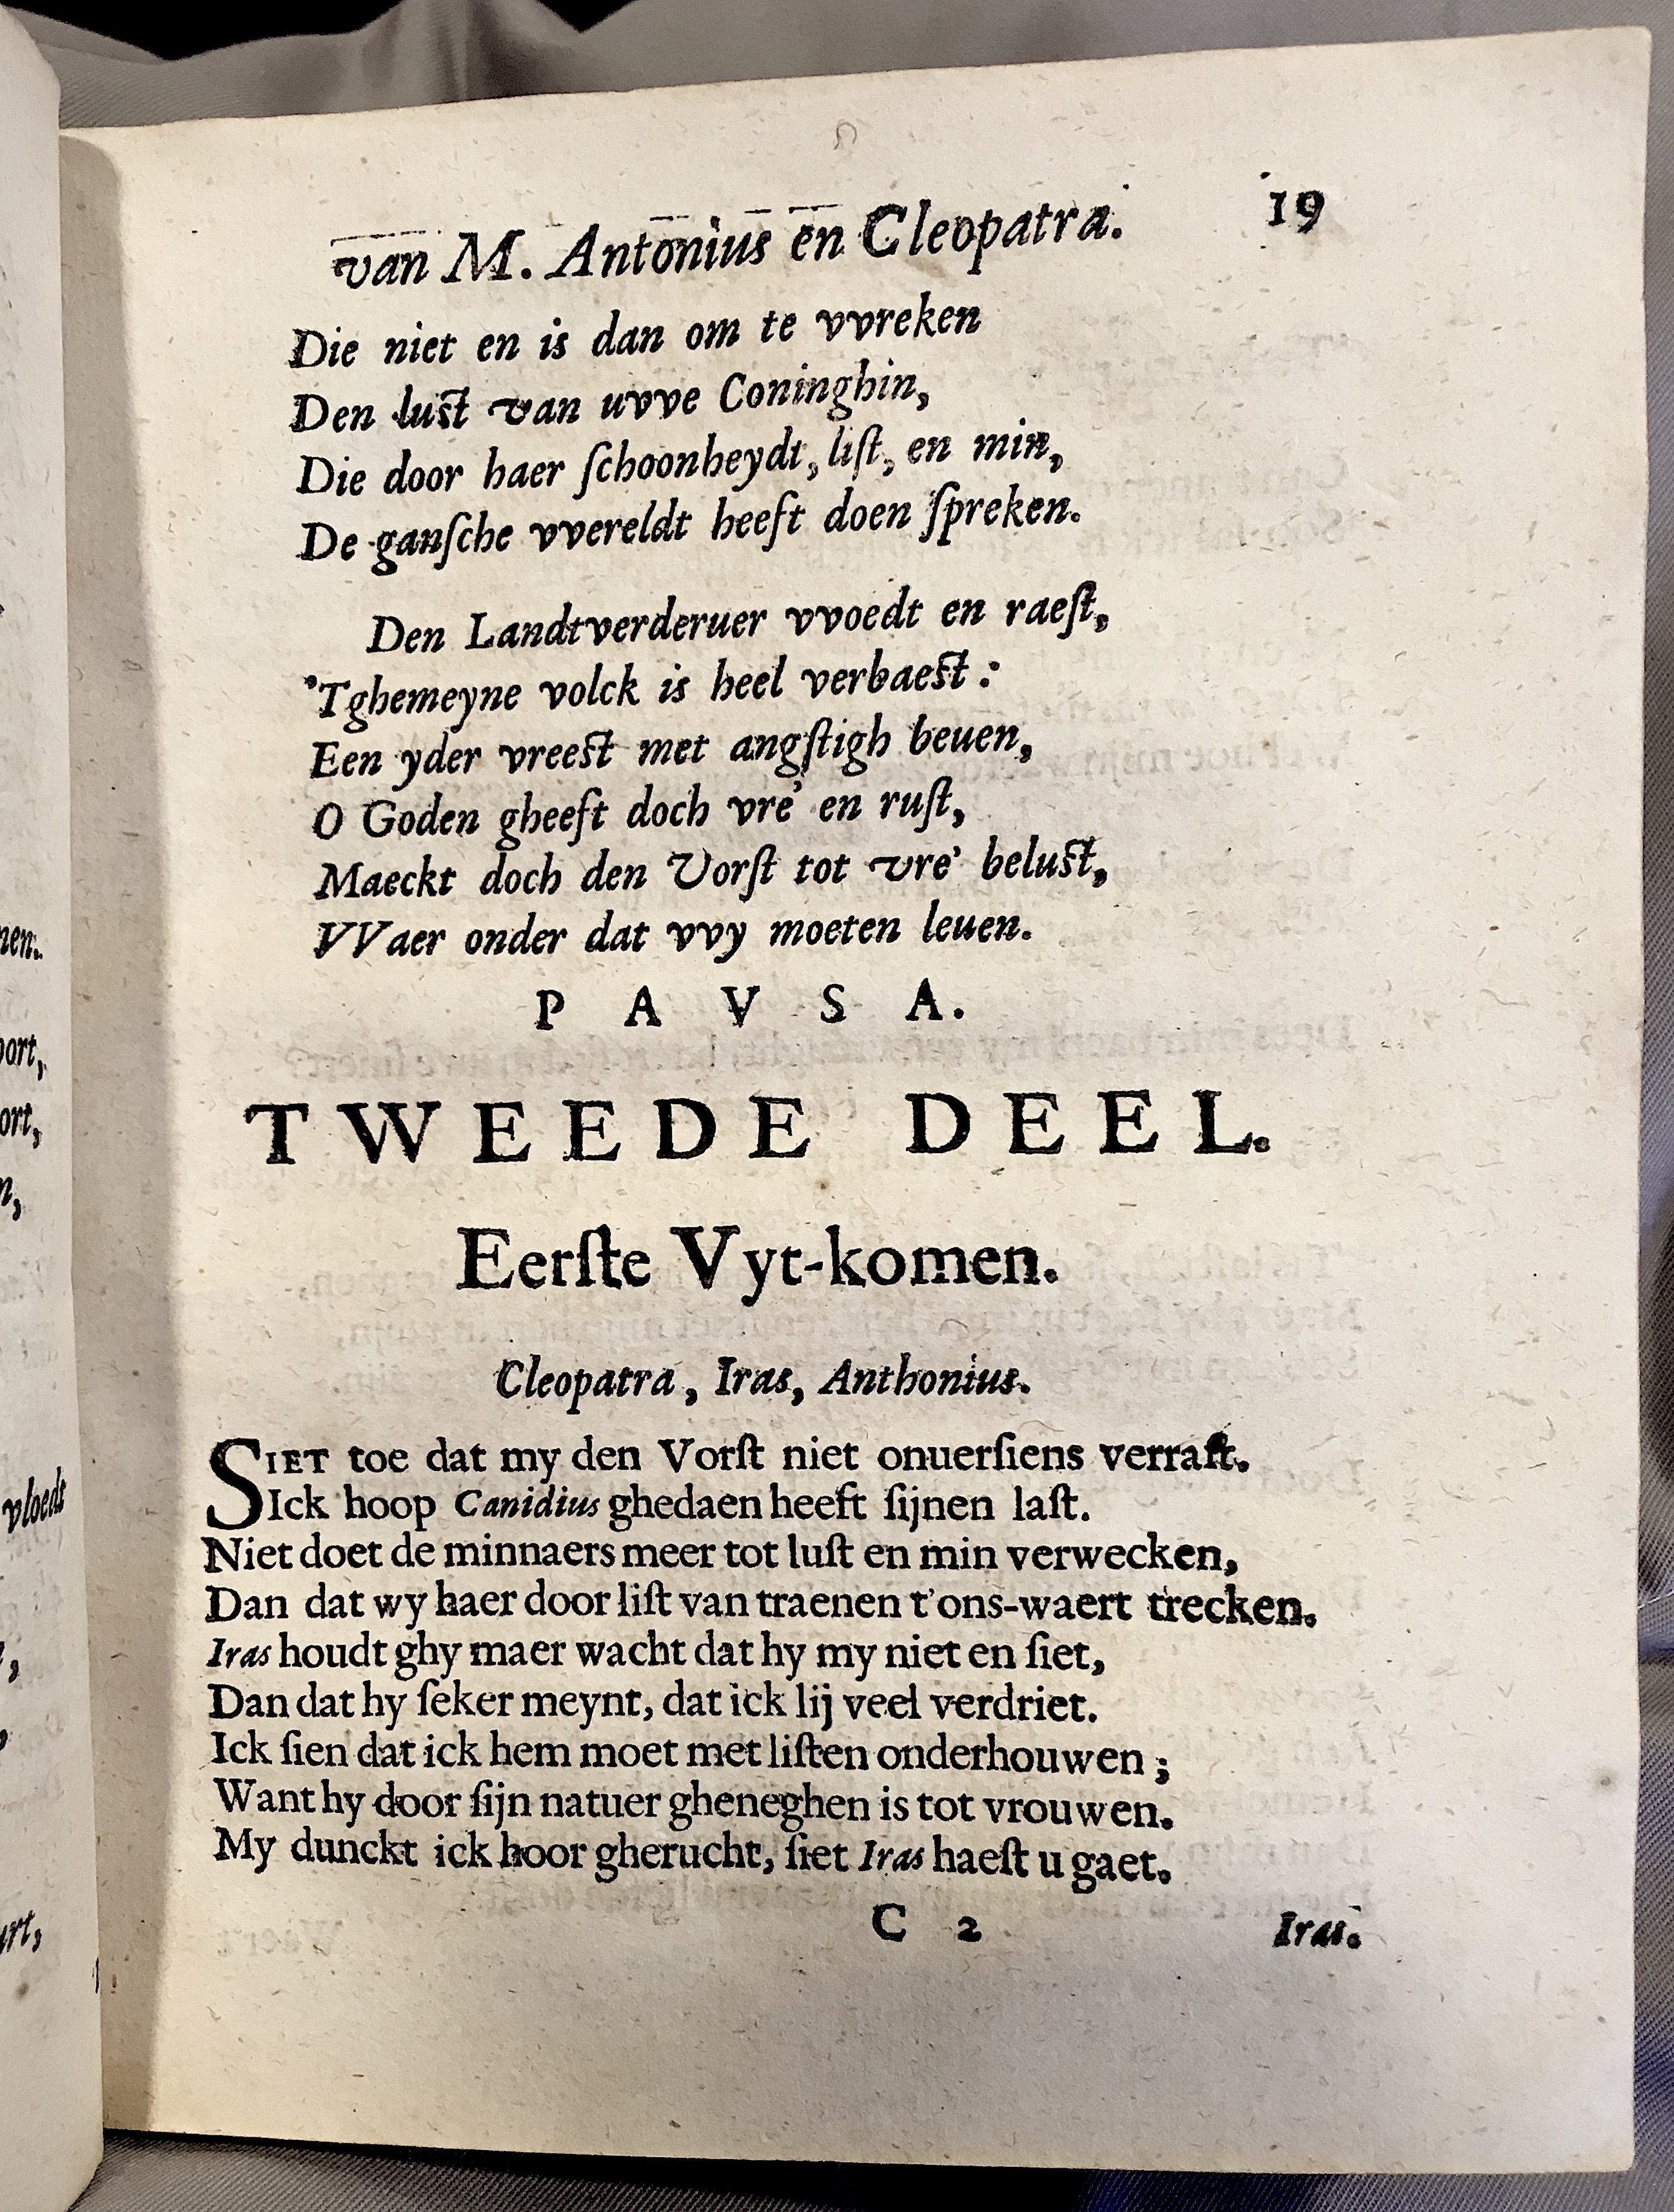 van M. Antonius en Cleopatra. 19
Die niet en is dan om te vvreken
Den lust van uvve Coninghin,
Die door haer ſchoonheydt, liſt, en min,
De ganſche vvereldt heeft doen ſpreken.
Den Landtverderuer vvoedt en raeſt,
'Tghemeyne volck is heel verbaest:
Een yder vreest met angſtigh beuen,
O Goden gheeft doch vre' en ruſt,
Maeckt doch den Vorſt tot vre' belust,
VVaer onder dat vvy moeten leuen.
P A V S A.
TWEEDE DEEL.
Eerſte Vyt-komen.
Cleopatra, Iras, Anthonius.
SIET toe dat my den Vorſt niet onuerſiens verraſt.
Ick hoop Canidius ghedaen heeft ſijnen laſt.
Niet doet de minnaers meer tot luſt en min verwecken,
Dan dat wy haer door liſt van traenen t'ons-waert trecken.
Iras houdt ghy maer wacht dat hy my niet en ſiet,
Dan dat hy ſeker meynt, dat ick lij veel verdriet.
Ick ſien dat ick hem moet met liſten onderhouwen;
Want hy door ſijn natuer gheneghen is tot vrouwen.
My dunckt ick hoor gherucht, ſiet Iras haeſt u gaet.
C 2 Iras.